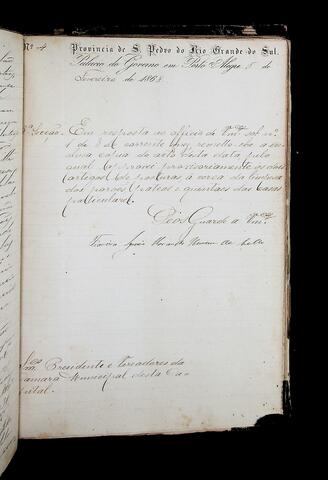 Nº 4 Provincia de S. Pedro do Rio Grande do Sul.
Palacio do Governo em Porto Alegre 5 de
Fevereiro de 1868
Secção. Em resposta ao officio de Vmcês sob nº
1 de 3 do corrente mez, remetto-lhes a in-
clusa copia do acto desta data pelo
qual approvei provisoriamente os dois
artigos de posturas á cerca da limpeza
das pateos e quintaes das casas
particulares.
Deos Guarde a Vmcês
Ignacio de
Snrs. Presidente e Vereadores da
Camara Municipal desta Ca-
pital.